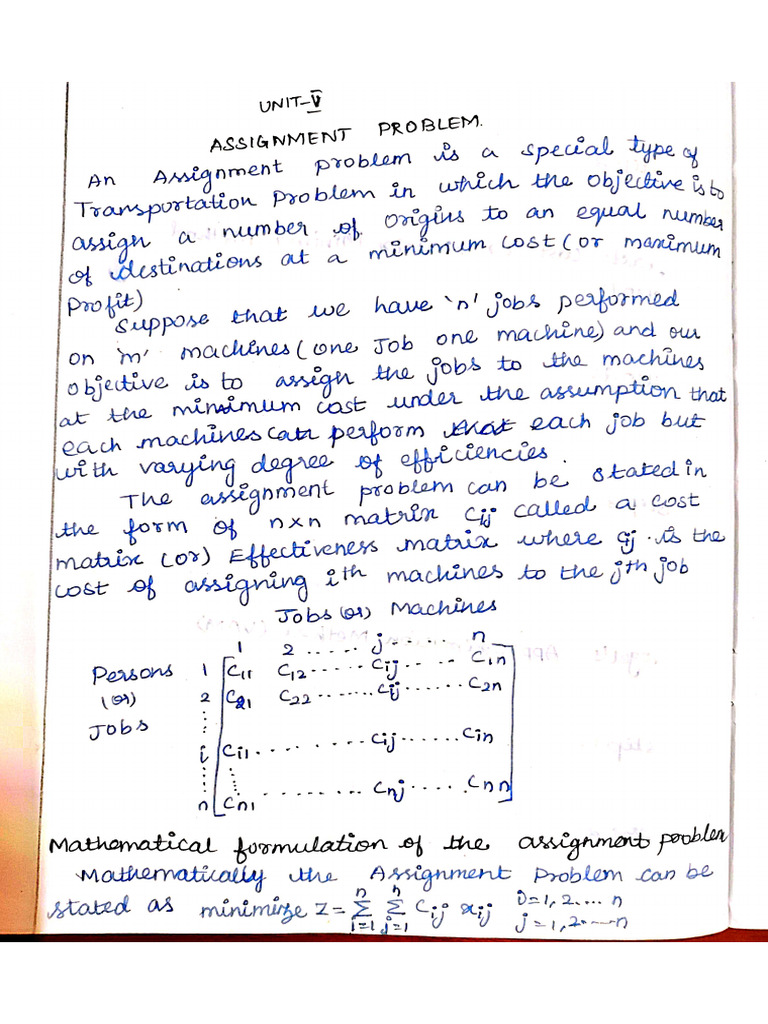 UNIT-V
ASSIGNMENT PROBLEM.
An Assignment problem is a special type of
Transportation Problem in which the objective is to
assign a number of origins to an equal number
of destinations at a minimum cost (or maximum
Profit)
Suppose that we have 'n' jobs performed
on 'm' machines (one Job one machine) and our
objective is to assign the jobs to the machines
at the minimum cost under the assumption that
each machines can perform each job but
with varying degree of efficiencies.
The assignment problem can be stated in
the form of n×n matrix Cij called a cost
matrix (or) Effectiveness matrix where Cij is the
cost of assigning ith machines to the jth job
Jobs (or) Machines
1 2 ..... j ...... n
Persons 1 C11 C12 ...... Cij ...... C1n
(or) 2 C21 C22 ....... Cij ...... C2n
Jobs
i Ci1 ........ Cij ....... Cin
n Cn1 ......... Cnj ...... Cnn
Mathematical formulation of the assignment problem
Mathematically the Assignment Problem can be
stated as minimize Z = n∑i=1 n∑j=1 Cij xij i=1,2....n
j=1,2.....n